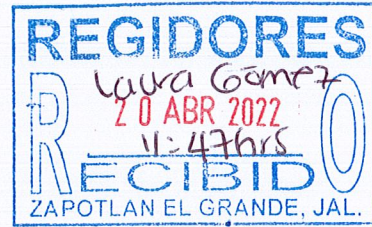 REGIDORES
Laura Gómez
20 ABR 2022
11:47hrs
RECIBIDO
ZAPOTLAN EL GRANDE, JAL.